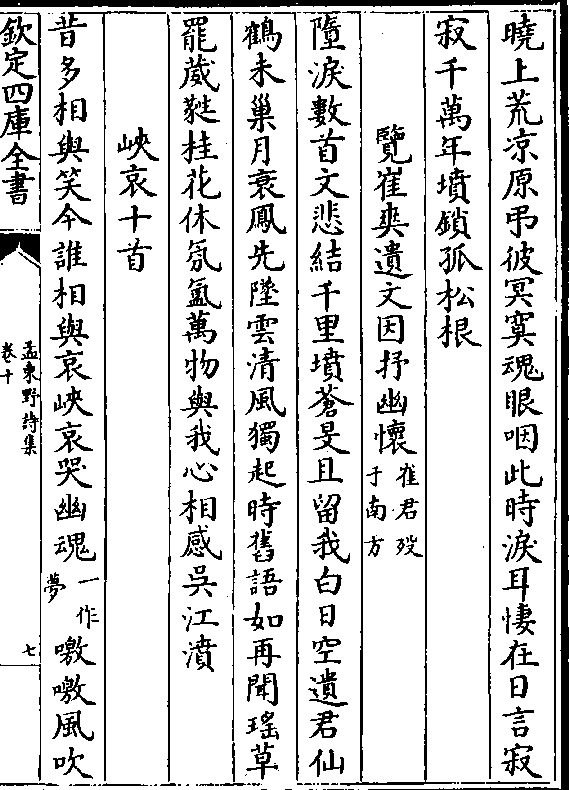 曉上荒凉原弔彼冥寞魂眼咽此時淚耳悽在日言寂
寂千萬年墳鎖孤松根
覽崔爽遺文因抒幽懷崔君殁于南方
墮淚數首文悲結千里墳蒼旻且留我白日空遺君仙
鶴未巢月衰鳳先墜雲清風獨起時舊語如再聞瑤草
罷葳蕤桂花休氛氳萬物與我心相感吳江濆
峽哀十首
昔多相與笑今誰相與哀峽哀哭幽魂一作夢噭噭風吹
欽定四庫全書
孟東野詩集
卷十
七